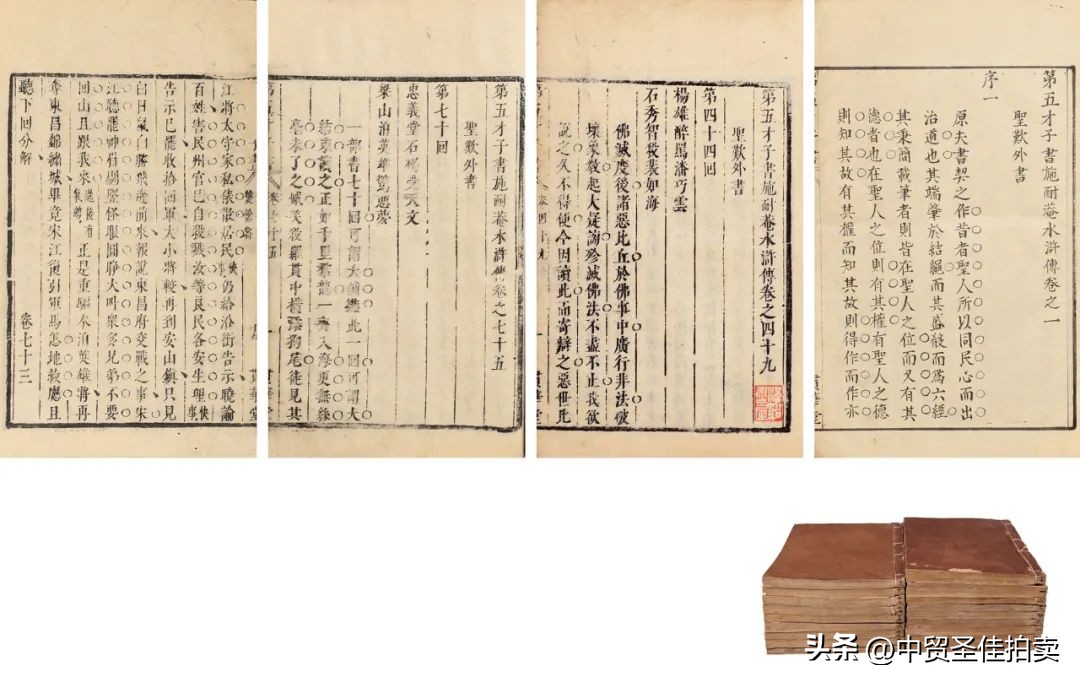 第五才子書施耐庵水滸傳卷之一
聖歎外書
序一
原夫書契之作昔者聖人所以同民心而出
治道也其端肇於結繩而其盛殽而為六經
其秉簡載筆者則皆在聖人之位而又有其
德者也在聖人之位則有其權有聖人之德
則知其故有其權而知其故則得作而作亦
第五才子書施耐庵水滸傳卷之四十九
聖歎外書
第四十四回
楊雄醉罵潘巧雲
石秀智殺裴如海
佛滅度後諸惡比丘於佛事中廣行非法破
壞象教起大疑謗殄滅佛法不盡不止我欲
說之久不得便今因讀此而寄辯之惡世比
貫華堂
第五才子書施耐庵水滸傳卷之七十五
聖歎外書
第七十回
忠義堂石碣受天文
梁山泊英雄驚惡夢
一部書七十回可謂大鋪排此一回可謂大
結束讀之正如千里群龍一齊入海更無絲
毫未了之憾笑殺羅貫中橫添狗尾徒見其
貫華堂
江將太守家私俵散居民仍給沿街告示曉諭
百姓害民州官已自殺戮汝等良民各安生理
告示已罷收拾回軍大小將校再到安山鎮只見
白日鼠白勝飛逩前來報說東昌府交戰之事宋
江聽罷神眉剔豎怪眼圓睜大叫眾多兄弟不要
回山且跟我來正是重驅水泊英雄將再
奪東昌錦繡城畢竟宋江復引軍馬怎地救應且
聽下回分解 卷七十三
头条 @中贸圣佳拍卖